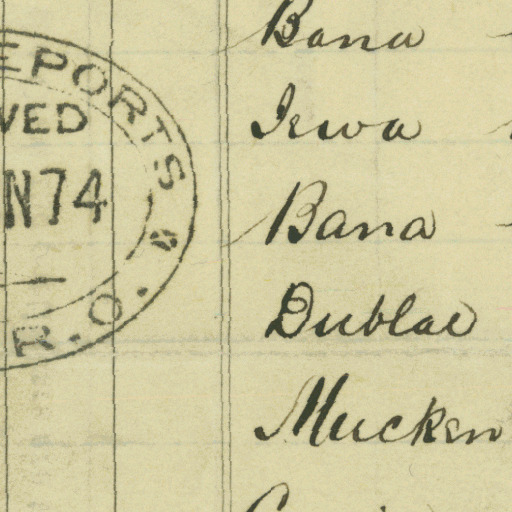 EPORTS
VED
N74
R.O.
Bana
Iewa
Bana
Dublae
Mucken